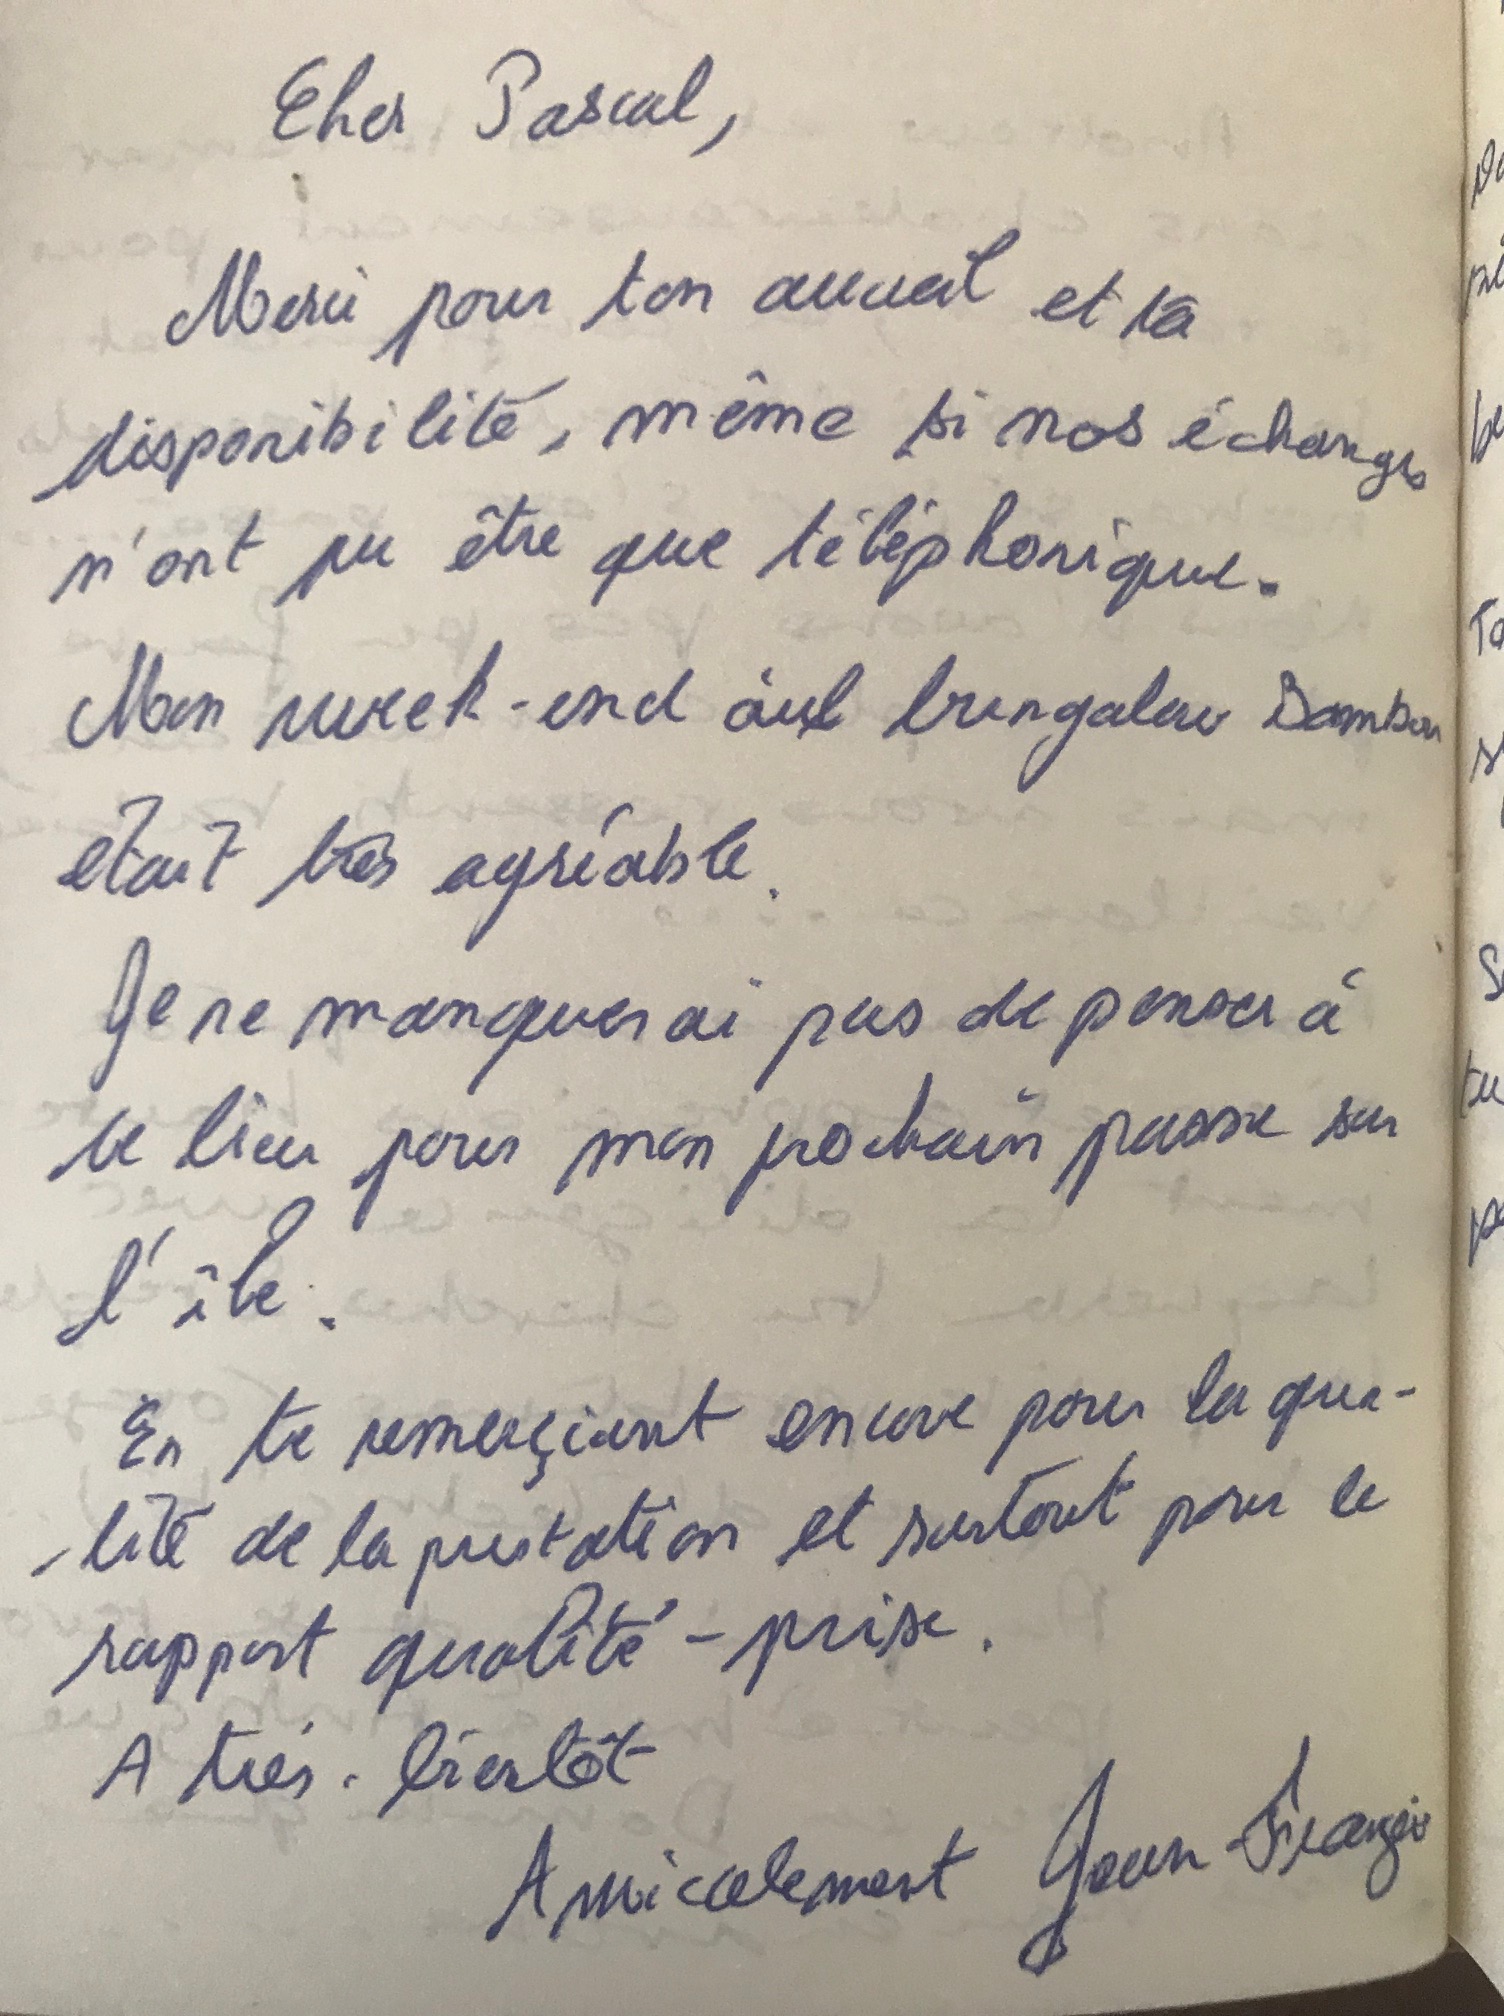 Cher Pascal,
Merci pour ton accueil et ta
disponibilité, même si nos échanges
n'ont pu être que téléphonique.
Mon week-end au bungalow Bambou
était très agréable.
Je ne manquerai pas de penser à
ce lieu pour mon prochain passe sur
l'île.
En te remerçiant encore pour la qua-
-lité de la prestation et surtout pour le
rapport qualité-prise.
A très-bientôt
Amicalement Jean-François